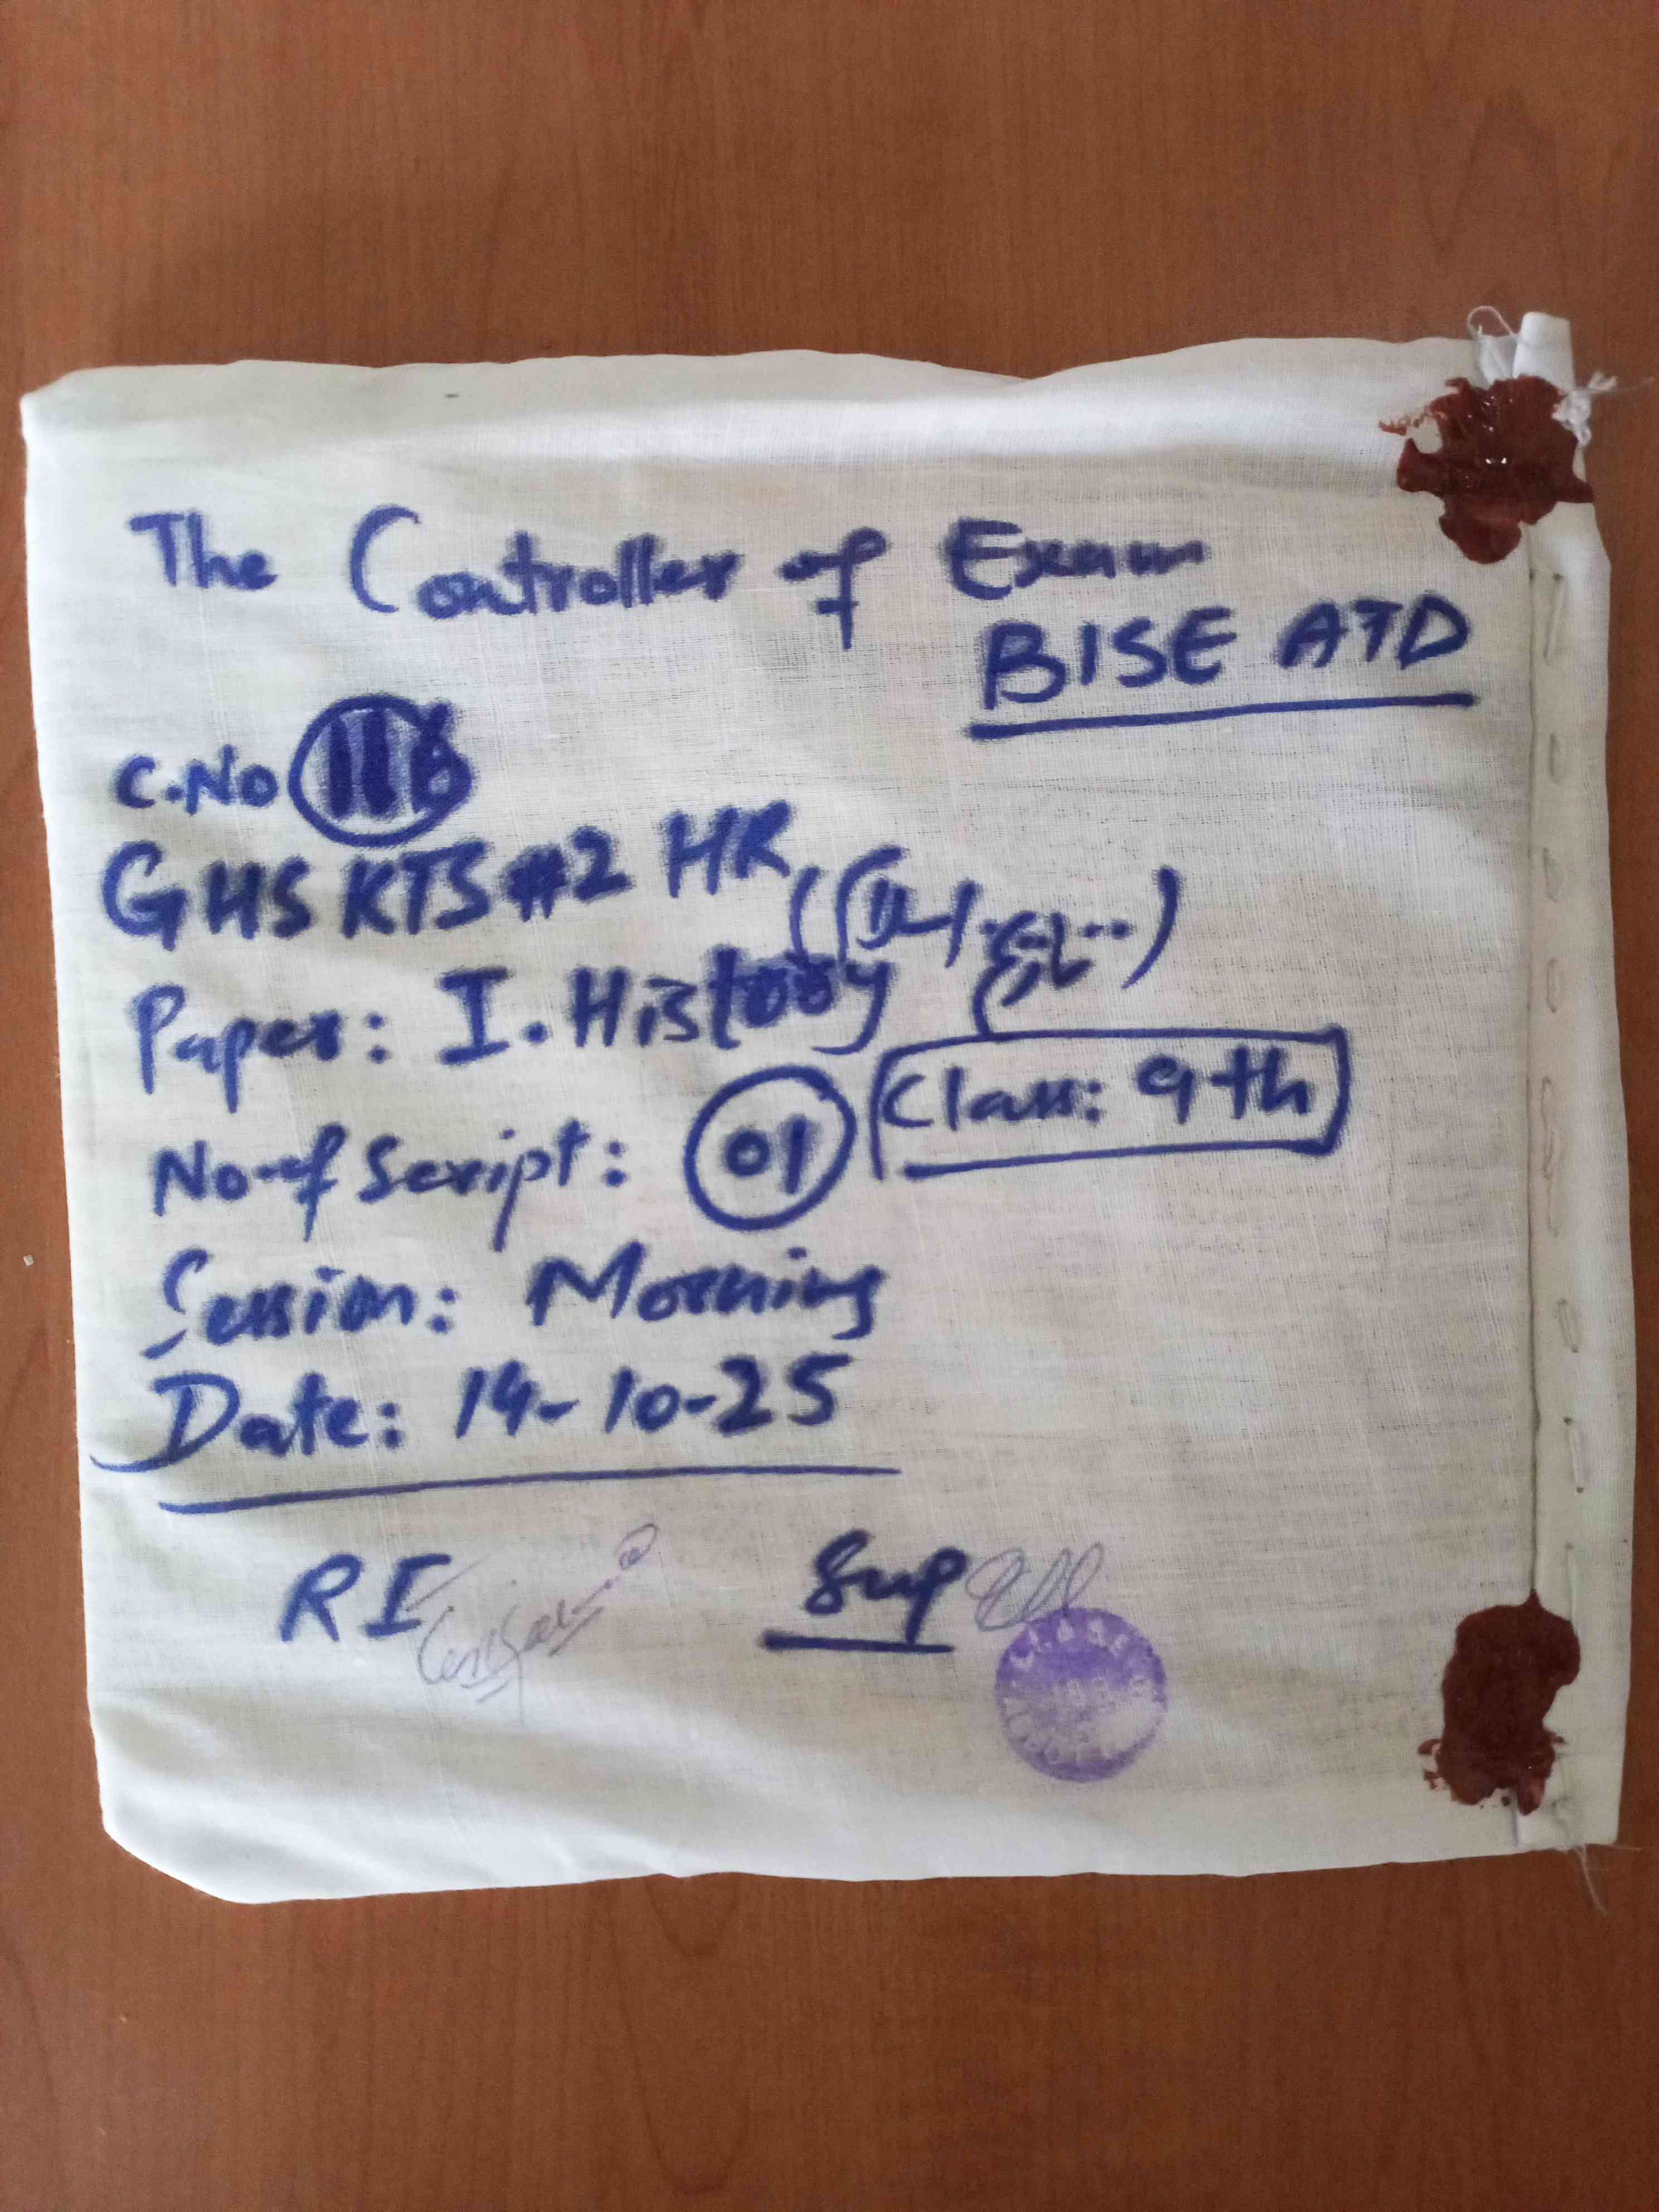 The Controller of Exam
BISE ATD
C.No 116
GHS KTS #2 HR
Paper: I. History
Class: 9th
No of Script: 01
Session: Morning
Date: 14-10-25
RI
Sup